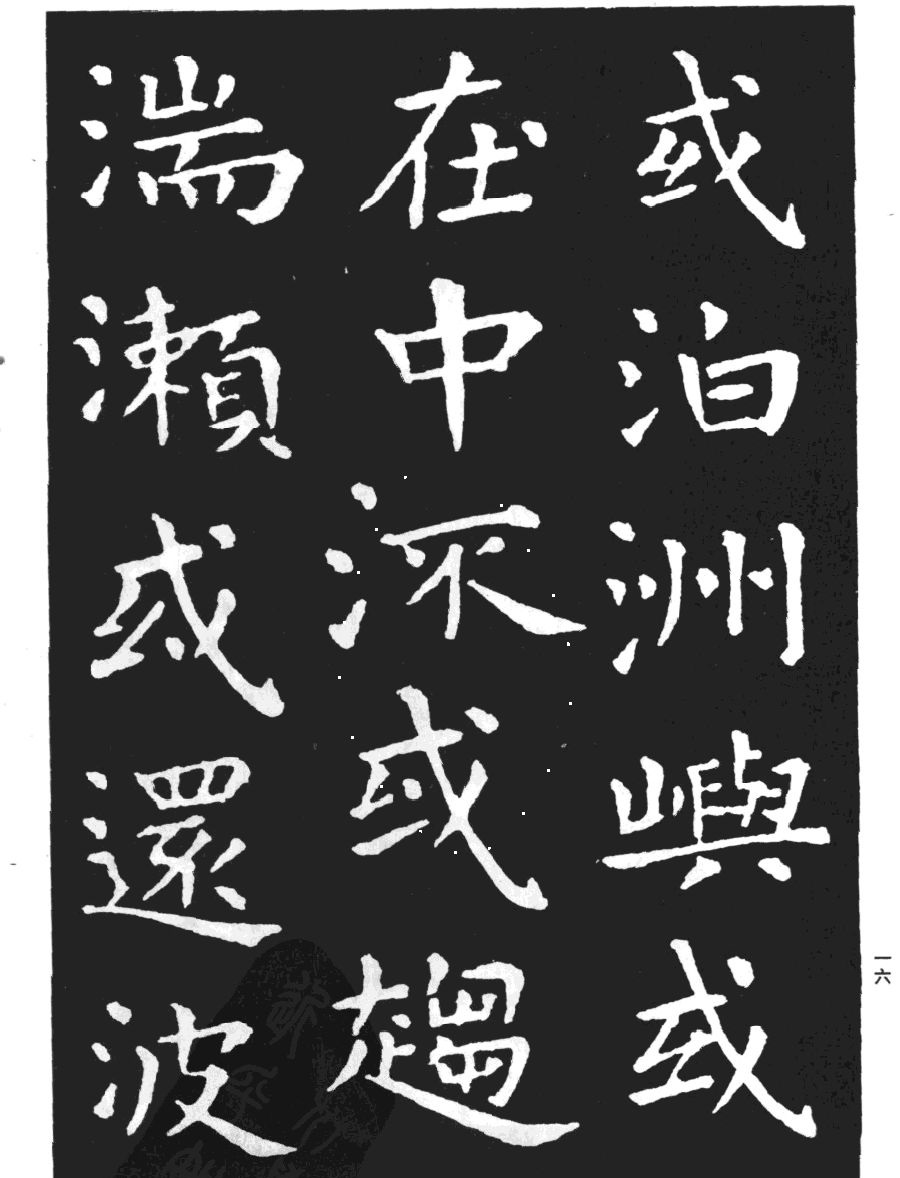 或泊洲嶼或
在中流或趨
湍瀨或還波
一六